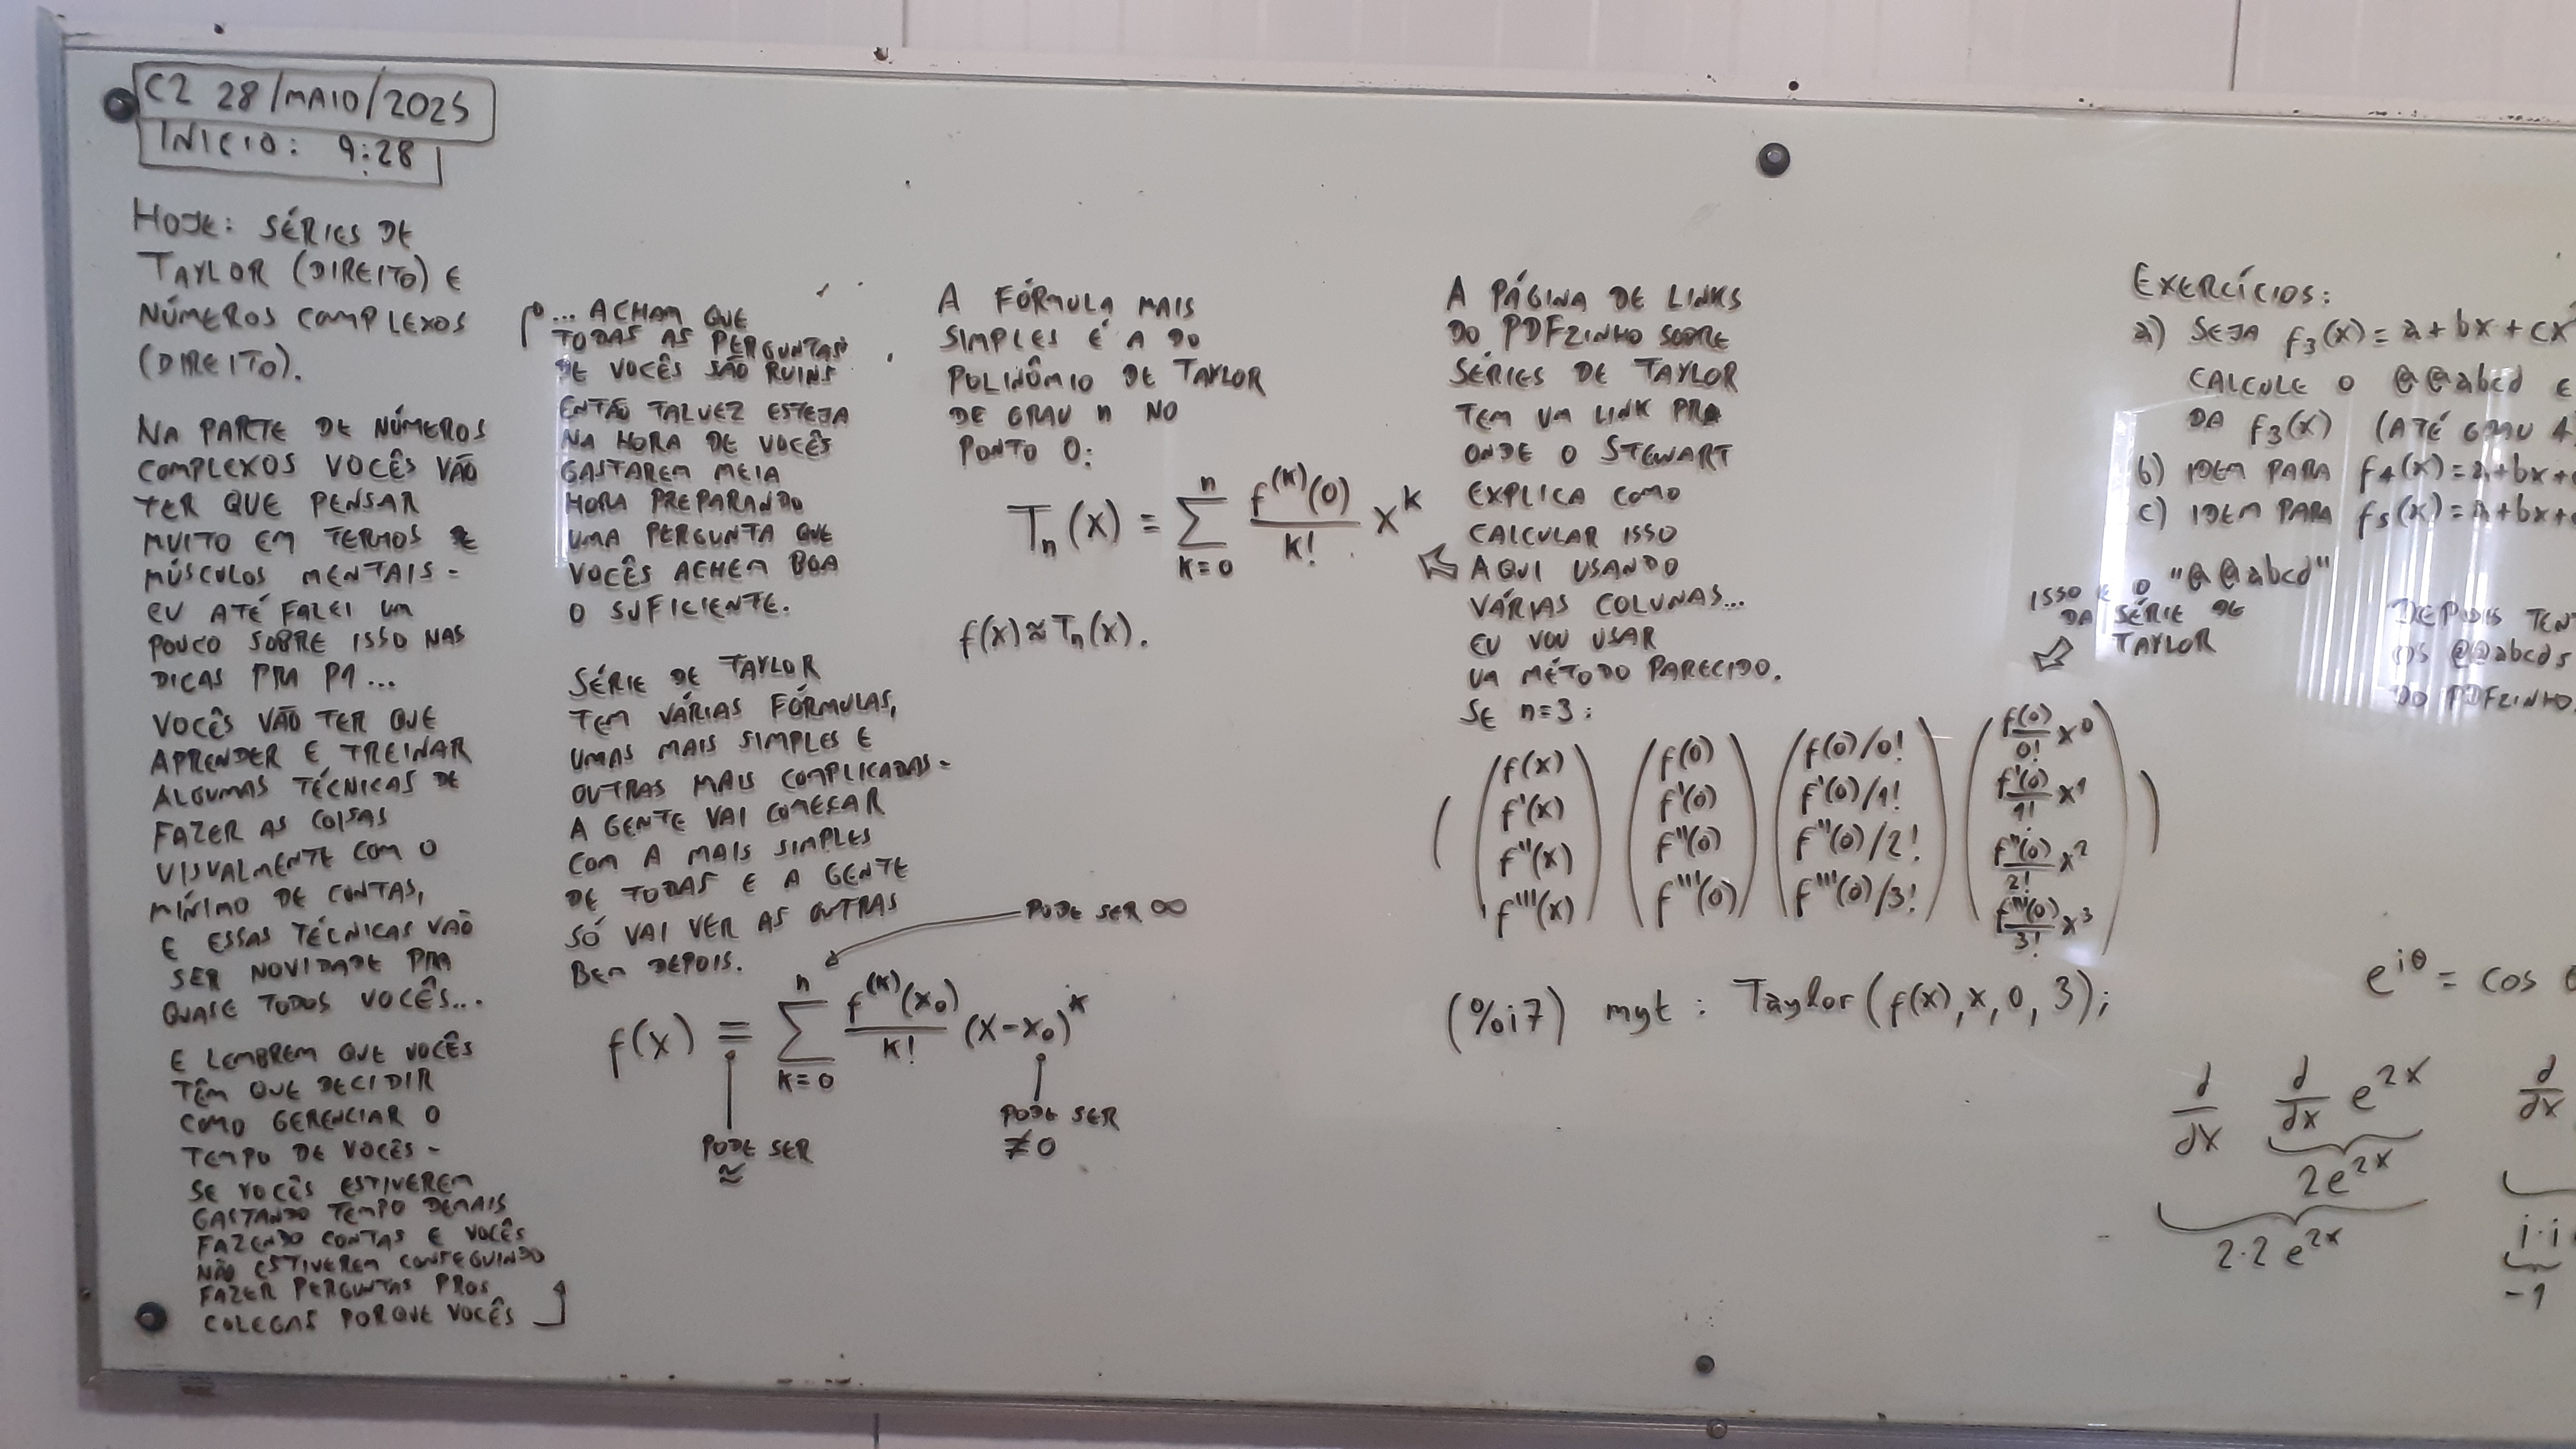 C2 28/MAIO/2025
INÍCIO: 9:28
HOJE: SÉRIES DE
TAYLOR (DIREITO) E
NÚMEROS COMPLEXOS
(DIREITO).
NA PARTE DE NÚMEROS
COMPLEXOS VOCÊS VÃO
TER QUE PENSAR
MUITO EM TERMOS DE
MÚSCULOS MENTAIS -
EU ATÉ FALEI UM
POUCO SOBRE ISSO NAS
DICAS PRA P1...
VOCÊS VÃO TER QUE
APRENDER E TREINAR
ALGUMAS TÉCNICAS DE
FAZER AS COISAS
VISUALMENTE COM O
MÍNIMO DE CONTAS,
E ESSAS TÉCNICAS VÃO
SER NOVIDADE PRA
QUASE TODOS VOCÊS...
E LEMBREM QUE VOCÊS
TÊM QUE DECIDIR
COMO GERENCIAR O
TEMPO DE VOCÊS -
SE VOCÊS ESTIVEREM
GASTANDO TEMPO DEMAIS
FAZENDO CONTAS E VOCÊS
NÃO ESTIVEREM CONSEGUINDO
FAZER PERGUNTAS PROS
COLEGAS PORQUE VOCÊS
... ACHAM QUE
TODAS AS PERGUNTAS
DE VOCÊS SÃO RUINS
ENTÃO TALVEZ ESTEJA
NA HORA DE VOCÊS
GASTAREM MEIA
HORA PREPARANDO
UMA PERGUNTA QUE
VOCÊS ACHEM BOA
O SUFICIENTE.
SÉRIE DE TAYLOR
TEM VÁRIAS FÓRMULAS,
UMAS MAIS SIMPLES E
OUTRAS MAIS COMPLICADAS -
A GENTE VAI COMEÇAR
COM A MAIS SIMPLES
DE TODAS E A GENTE
SÓ VAI VER AS OUTRAS
BEM DEPOIS.
PODE SER ∞
f(x) = ∑_{k=0}^{n} f^{(k)}(x₀)/k! (x-x₀)^k
PODE SER
≈
PODE SER
≠0
A FÓRMULA MAIS
SIMPLES É A DO
POLINÔMIO DE TAYLOR
DE GRAU n NO
PONTO 0:
T_n(x) = ∑_{k=0}^{n} f^{(k)}(0)/k! x^k
f(x) ≈ T_n(x).
A PÁGINA DE LINKS
DO PDFZINHO SOBRE
SÉRIES DE TAYLOR
TEM UM LINK PRA
ONDE O STEWART
EXPLICA COMO
CALCULAR ISSO
AQUI USANDO
VÁRIAS COLUNAS...
EU VOU USAR
UM MÉTODO PARECIDO.
SE n=3:
f(x) f(0) f(0)/0! f(0)/0! x⁰
f'(x) f'(0) f'(0)/1! f'(0)/1! x¹
f''(x) f''(0) f''(0)/2! f''(0)/2! x²
f'''(x) f'''(0) f'''(0)/3! f'''(0)/3! x³
(%i7) myt : Taylor(f(x), x, 0, 3);
EXERCÍCIOS:
a) SEJA f₃(x) = a + bx + cx
CALCULE O @@abcd E
DA f₃(x) (ATÉ GRAU 4
b) IDEM PARA f₄(x) = a+bx+
c) IDEM PARA f₅(x) = a+bx+
ISSO É O "@@abcd"
DA SÉRIE DE
TAYLOR
DEPOIS TEN
OS @@abcds
DO PDFZINHO.
e^{iθ} = cos
d/dx d/dx e^{2x}
2e^{2x}
2·2 e^{2x}
d/dx
i·i
-1